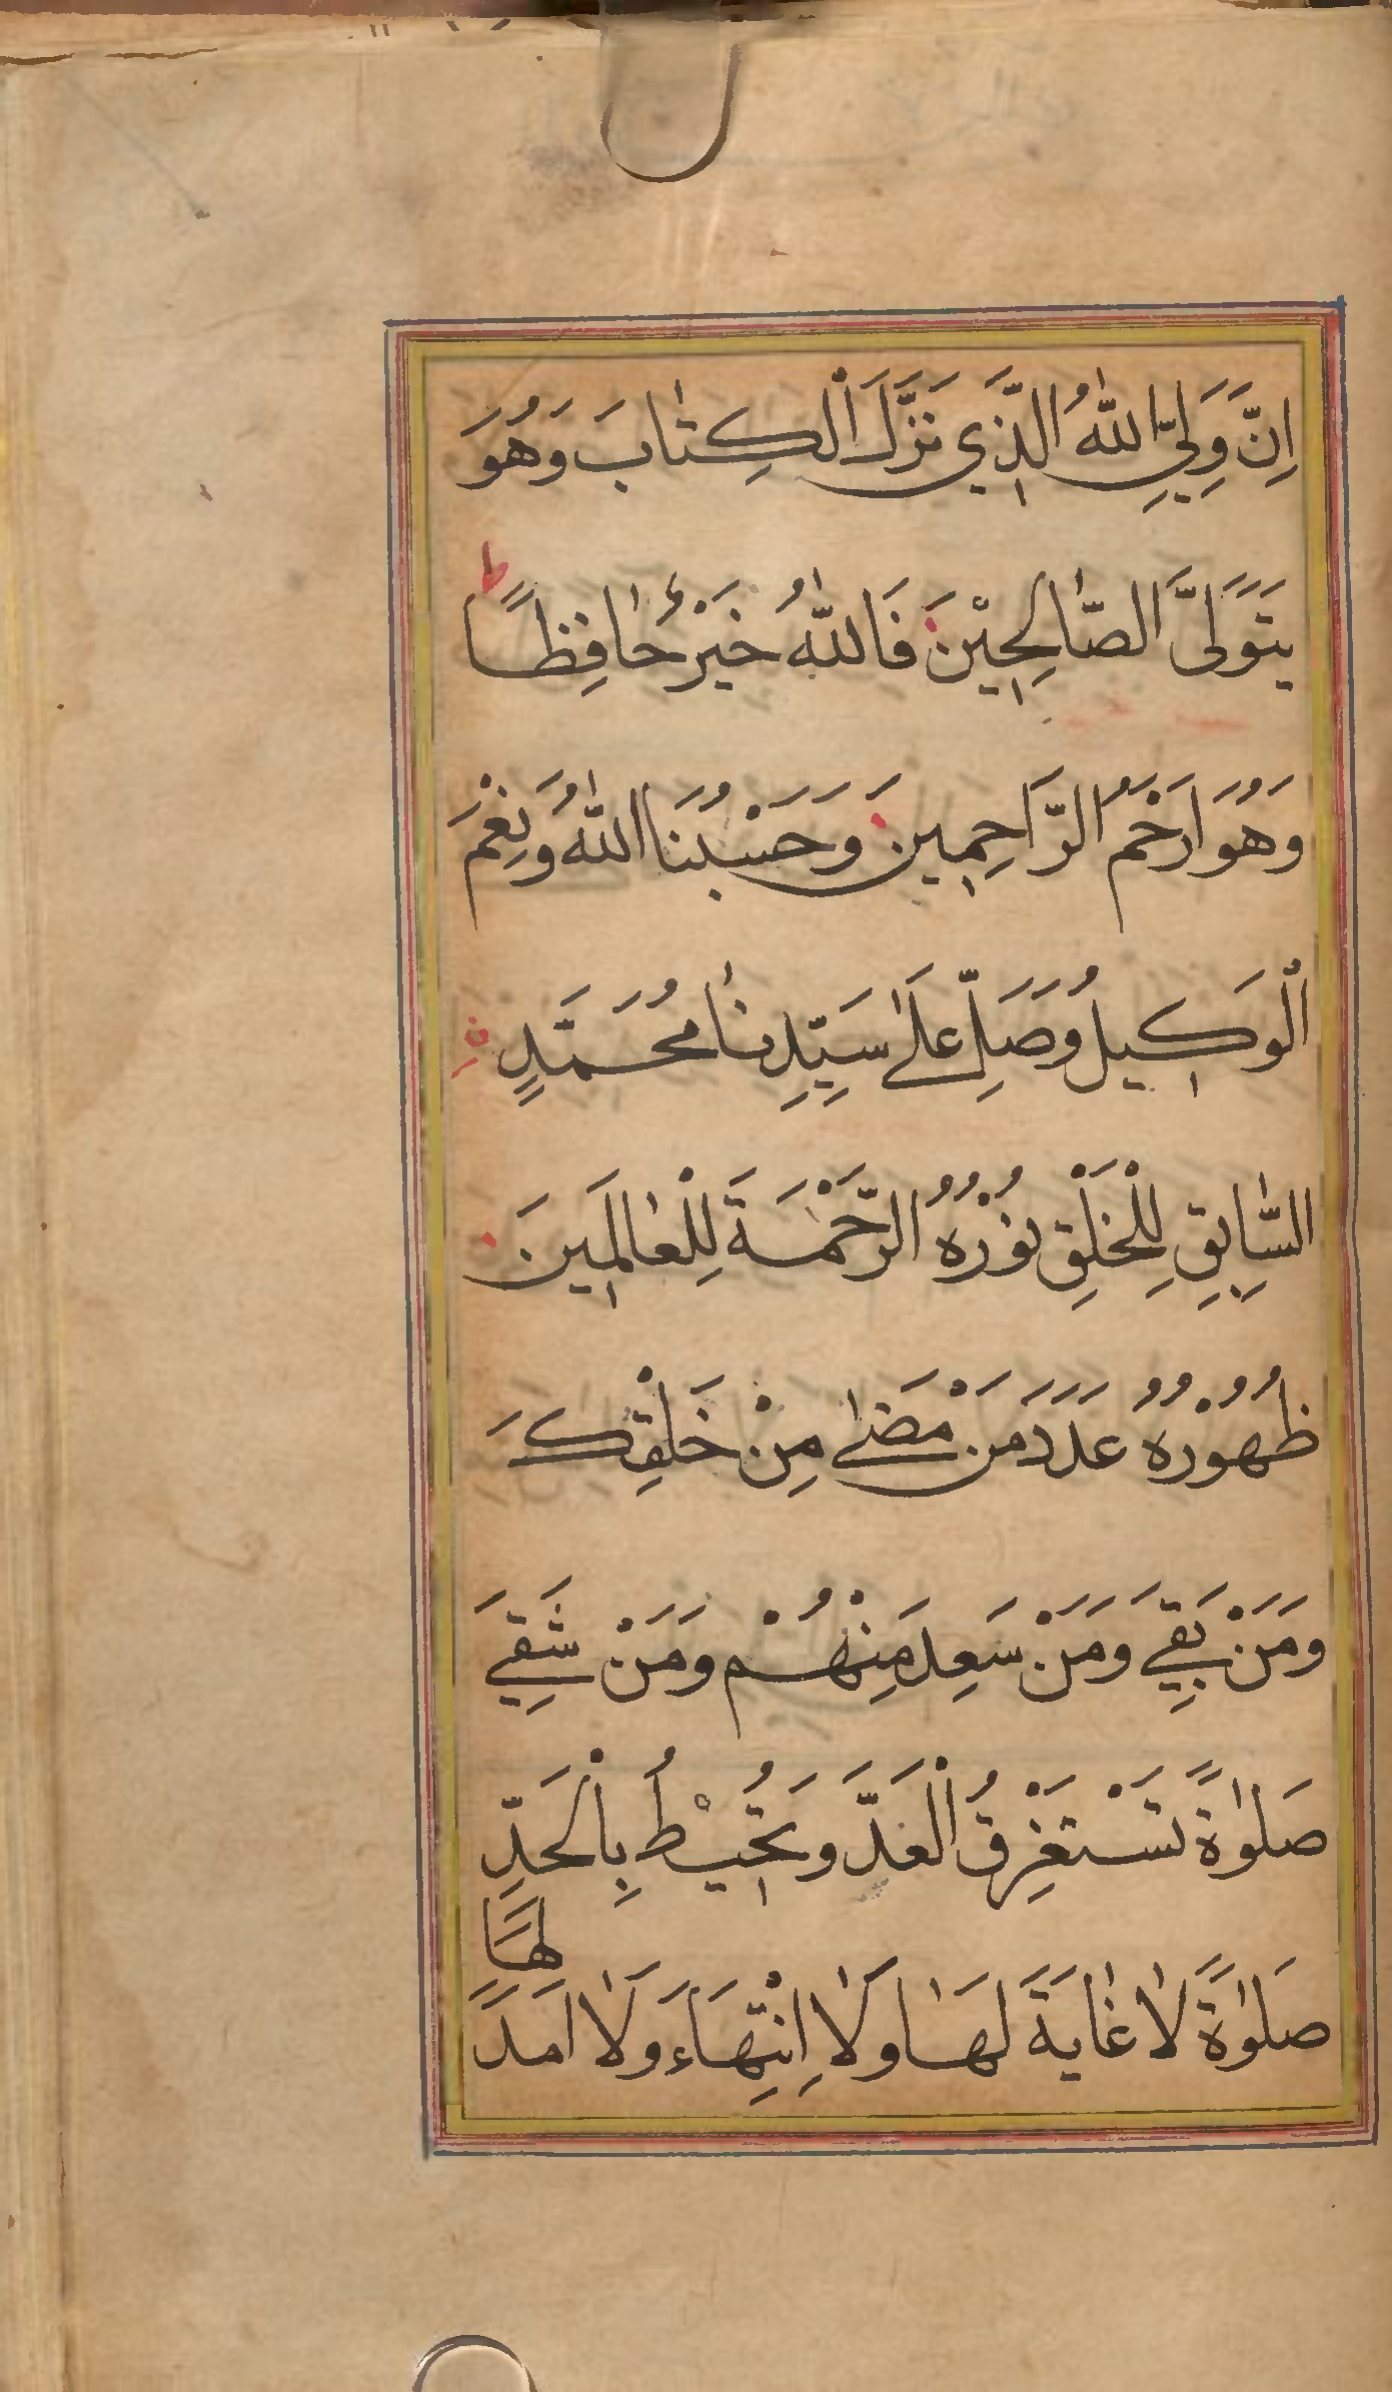 اِنَّ وَلِيِّيَ اللّٰهُ الَّذِي نَزَّلَ الْكِتٰابَ وَهُوَ
يَتَوَلَّى الصّٰالِحِيْنَ فَاللّٰهُ خَيْرٌ حٰافِظًا ط
وَهُوَ اَرْحَمُ الرَّاحِمِينَ وَحَسْبُنَا اللّٰهُ وَنِعْمَ
الْوَكِيلُ وَصَلِّ عَلَىٰ سَيِّدِنٰا مُحَمَّدٍ
السّٰابِقِ لِلْخَلْقِ نُوْرُهُ الرَّحْمَةَ لِلْعٰالَمِينَ
ظُهُوْرُهُ عَدَدَ مَنْ مَضٰى مِنْ خَلْقِكَ
وَمَنْ بَقِيَ وَمَنْ سَعِدَ مِنْهُمْ وَمَنْ شَقِيَ
صَلٰوةً تَسْتَغْرِقُ الْعَدَّ وَتُحِيْطُ بِالْحَدِّ
صَلٰوةً لٰا غٰايَةَ لَهٰا وَلٰا اِنْتِهَاءَ وَلٰا اَمَدَ لَهَا